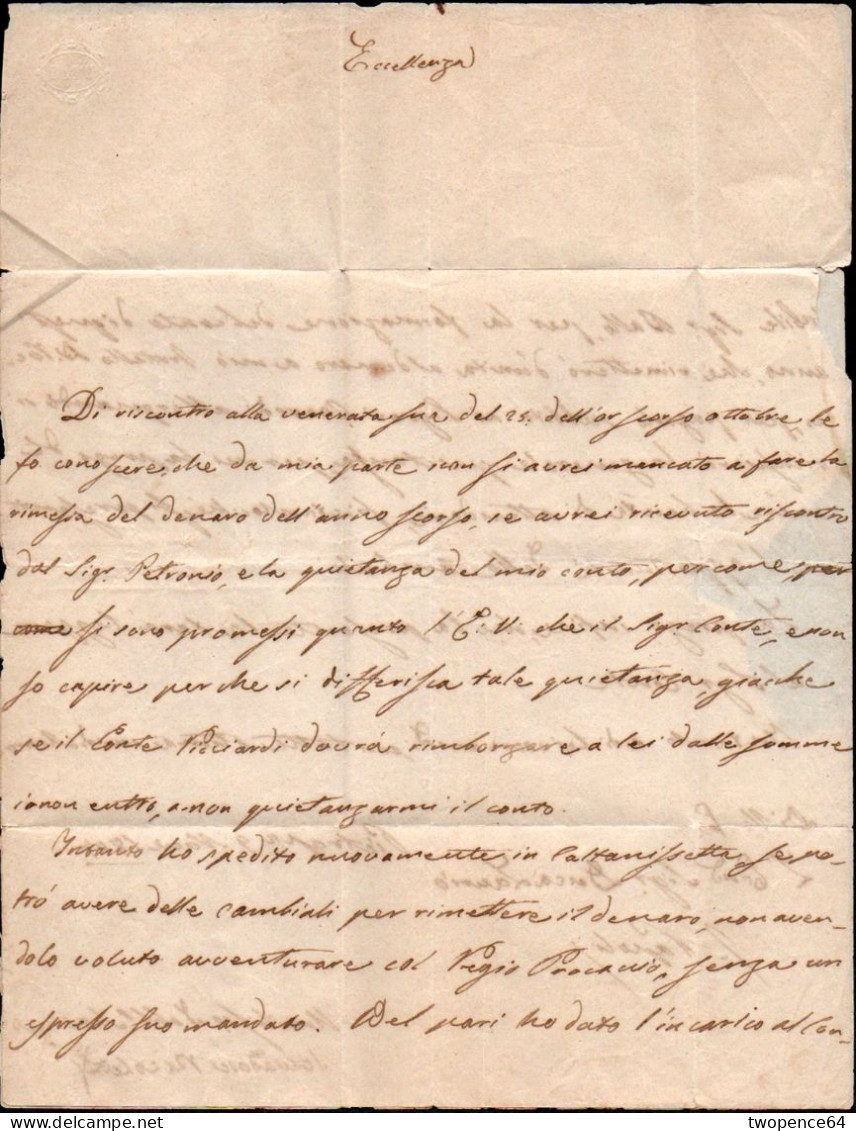 Eccellenza
Di riscontro alla venerata sua del 25. dell'or scorso ottobre le
fo conoscere, che da mia parte non si avrei mancato a fare la
rimessa del denaro dell'anno scorso, se avrei ricevuto riscontro
dal Sigr. Petronio, e la quietanza del mio conto, per come per
come si sono promessi quanto l'E. V. che il Sigr. Conte, e non
so capire perche si differisca tale quietanza, giacche
se il Conte Picciardi dovrà rimborzare a lei dalle somme
io non entro, a non quietanzarmi il conto.
Intanto ho spedito nuovamente in Caltanissetta, se po-
trò avere delle cambiali per rimettere il denaro, non aven-
dolo voluto avventurare col Regio Procaccio, senza un
espresso suo mandato. Del pari ho dato l'incarico al Con-
Salvadore
twopence64